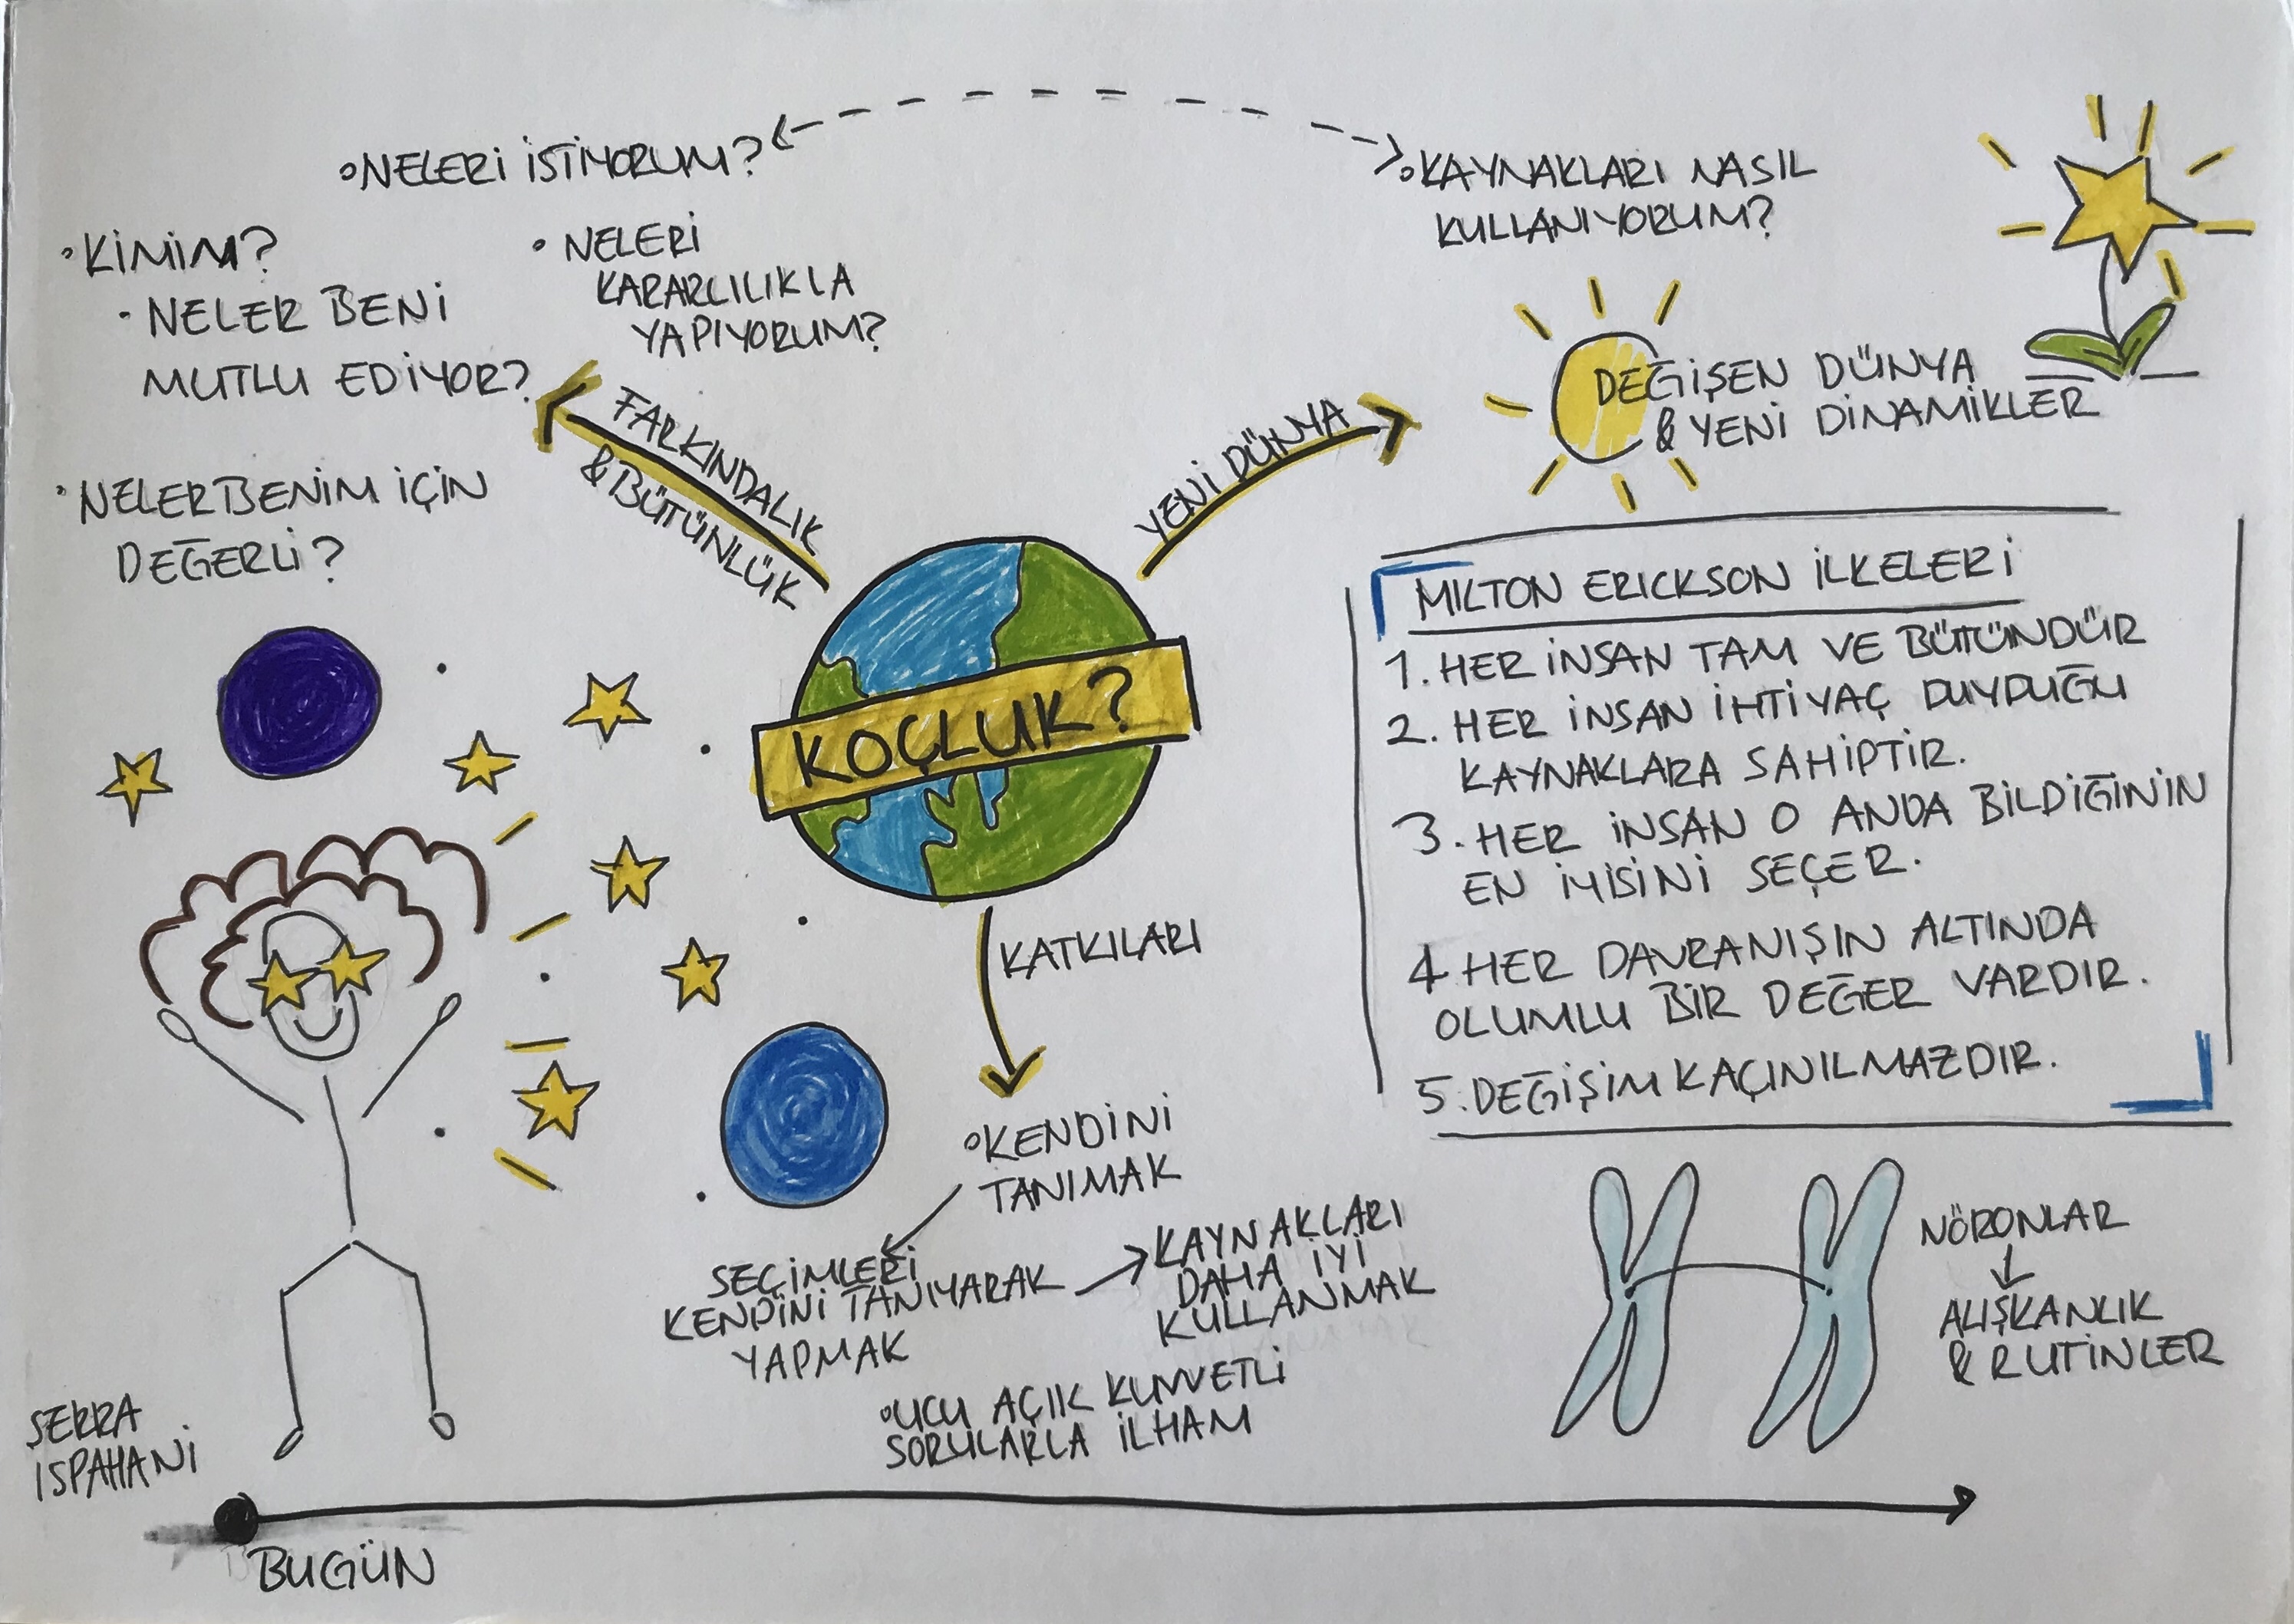 NELERİ İSTİYORUM?
KİMİM?
NELER BENİ
MUTLU EDİYOR?
NELERİ
KARARLILIKLA
YAPIYORUM?
NELER BENİM İÇİN
DEĞERLİ?
KAYNAKLARI NASIL
KULLANIYORUM?
FARKINDALIK
& BÜTÜNLÜK
YENİ DÜNYA
DEĞİŞEN DÜNYA
& YENİ DİNAMİKLER
KOÇLUK?
MILTON ERICKSON İLKELERİ
1. HER İNSAN TAM VE BÜTÜNDÜR
2. HER İNSAN İHTİYAÇ DUYDUĞU
KAYNAKLARA SAHİPTİR.
3. HER İNSAN O ANDA BİLDİĞİNİN
EN İYİSİNİ SEÇER.
4 HER DAVRANIŞIN ALTINDA
OLUMLU BİR DEĞER VARDIR.
5. DEĞİŞİM KAÇINILMAZDIR.
KATKILARI
KENDİNİ
TANIMAK
SEÇİMLERİ
KENDİNİ TANIYARAK
YAPMAK
KAYNAKLARI
DAHA İYİ
KULLANMAK
UCU AÇIK KUVVETLİ
SORULARLA İLHAM
NÖRONLAR
ALIŞKANLIK
& RUTİNLER
SERRA
ISPAHANİ
BUGÜN